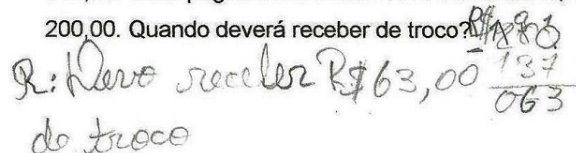 200,00. Quando deverá receber de troco?
R: Devo receber R$63,00
137
063
de troco